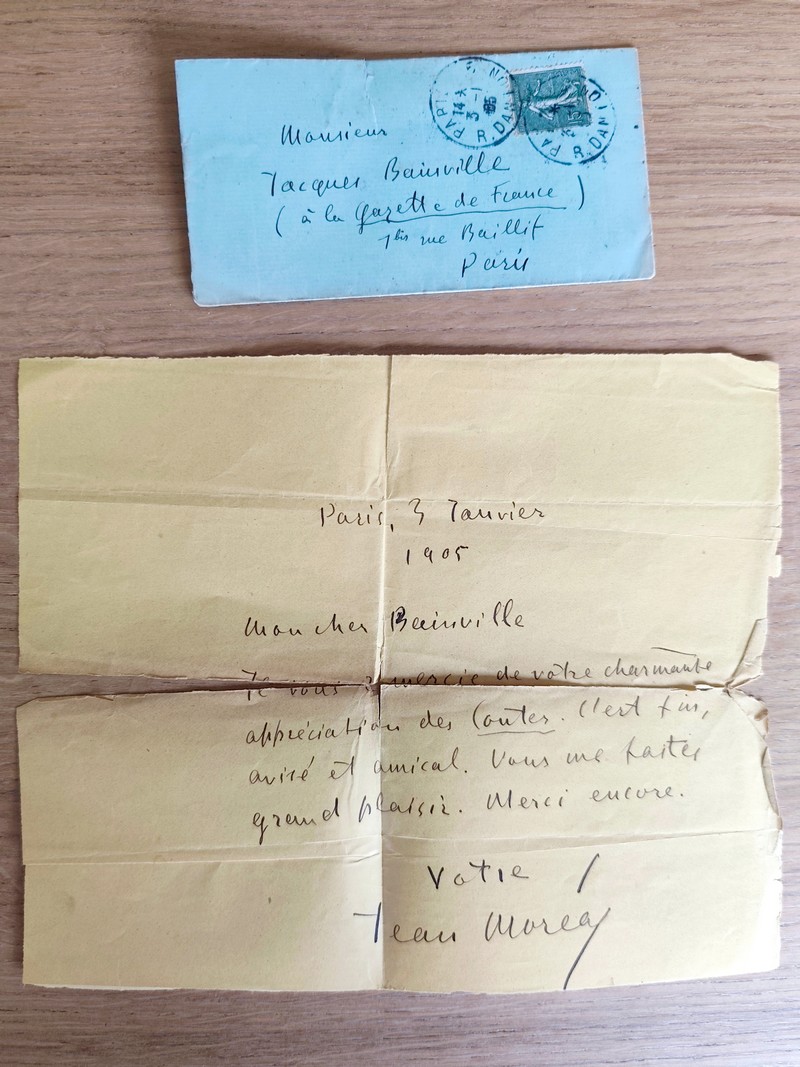 Monsieur
Jacques Bainville
(à la Gazette de France)
1bis rue Baillif
Paris
14*
3-1
05
R. DANTON
Paris, 3 Janvier
1905
Mon cher Bainville
Je vous remercie de votre charmante
appréciation des Contes. C'est fin,
avisé et amical. Vous me faites
grand plaisir. Merci encore.
Votre
Jean Moréas